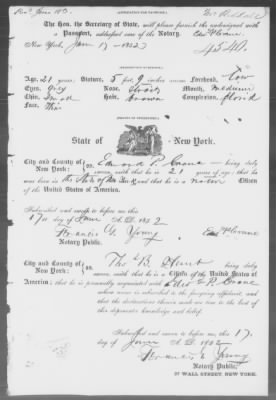 The Hon. the Secretary of State, will please furnish the undersigned with
a Passport, addressed care of the Notary.
New York, Jan 17 1852
4540
Age, 21 years Stature, 5 feet 9 inches Forehead, Low
Eyes, Grey Nose, Mouth, Medium
Chin, Small Hair, Brown Complexion, Florid
Face, Thin
State of New-York.
City and County of New York: ss. Edward P. Crane being duly
sworn, saith that he is 21 years of age; that he
was born in the State of New York and that he is a native Citizen
of the United States of America.
Subscribed and sworn to before me this
17 day of Jany A.D. 1852
Francis G. Young
Notary Public.
City and County of New York: ss. Tho B. Hunt being duly
sworn, saith that he is a Citizen of the United States of
America; that he is personally acquainted with Edw P. Crane
whose name is subscribed to the foregoing affidavit, and
that the declarations therein made are true to the best of
this deponent's knowledge and belief.
Subscribed and sworn to before me, this 17
day of Jany A.D. 1852
Francis G. Young
Notary Public,
57 WALL STREET, NEW-YORK.